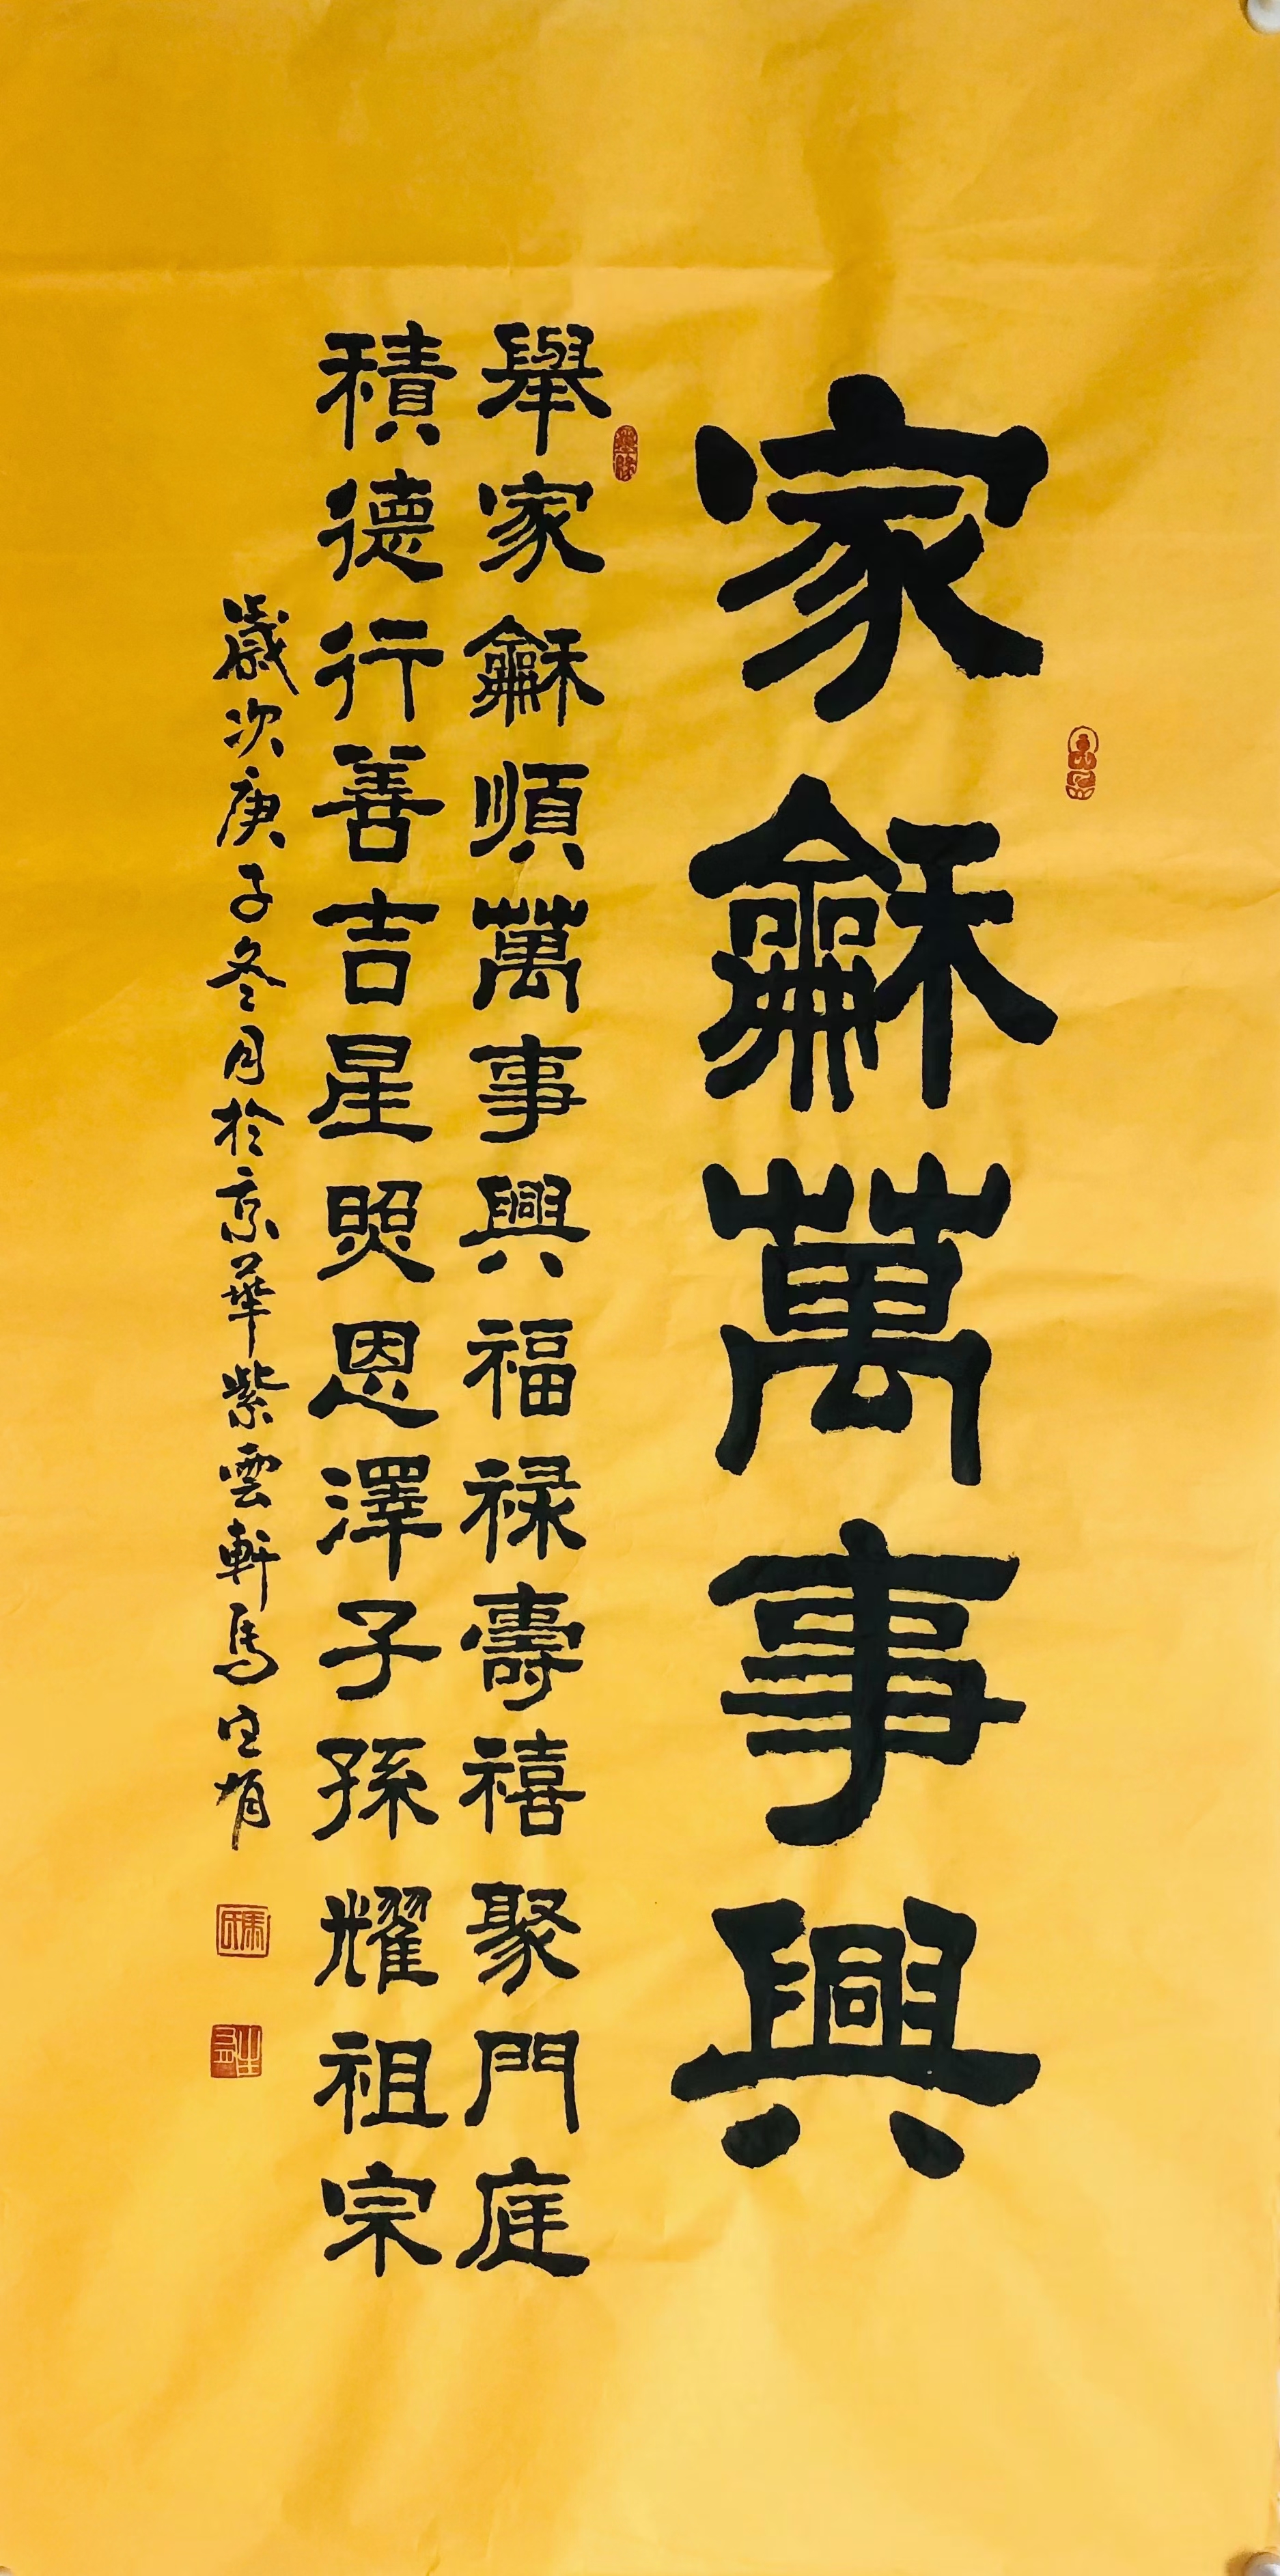 家龢萬事興
舉家龢順萬事興福禄壽禧聚門庭
積德行善吉星照恩澤子孫耀祖宗
歲次庚子冬月於京華紫雲軒馬
馬氏